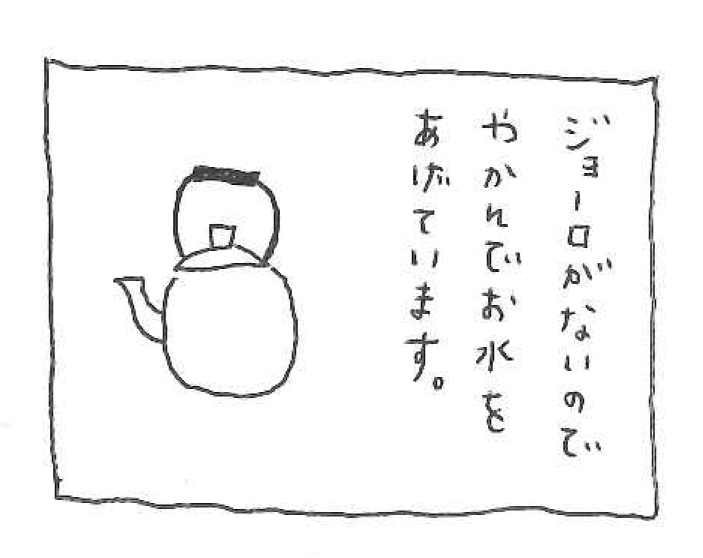 ジョーロがないので
やかんでお水を
あげています。